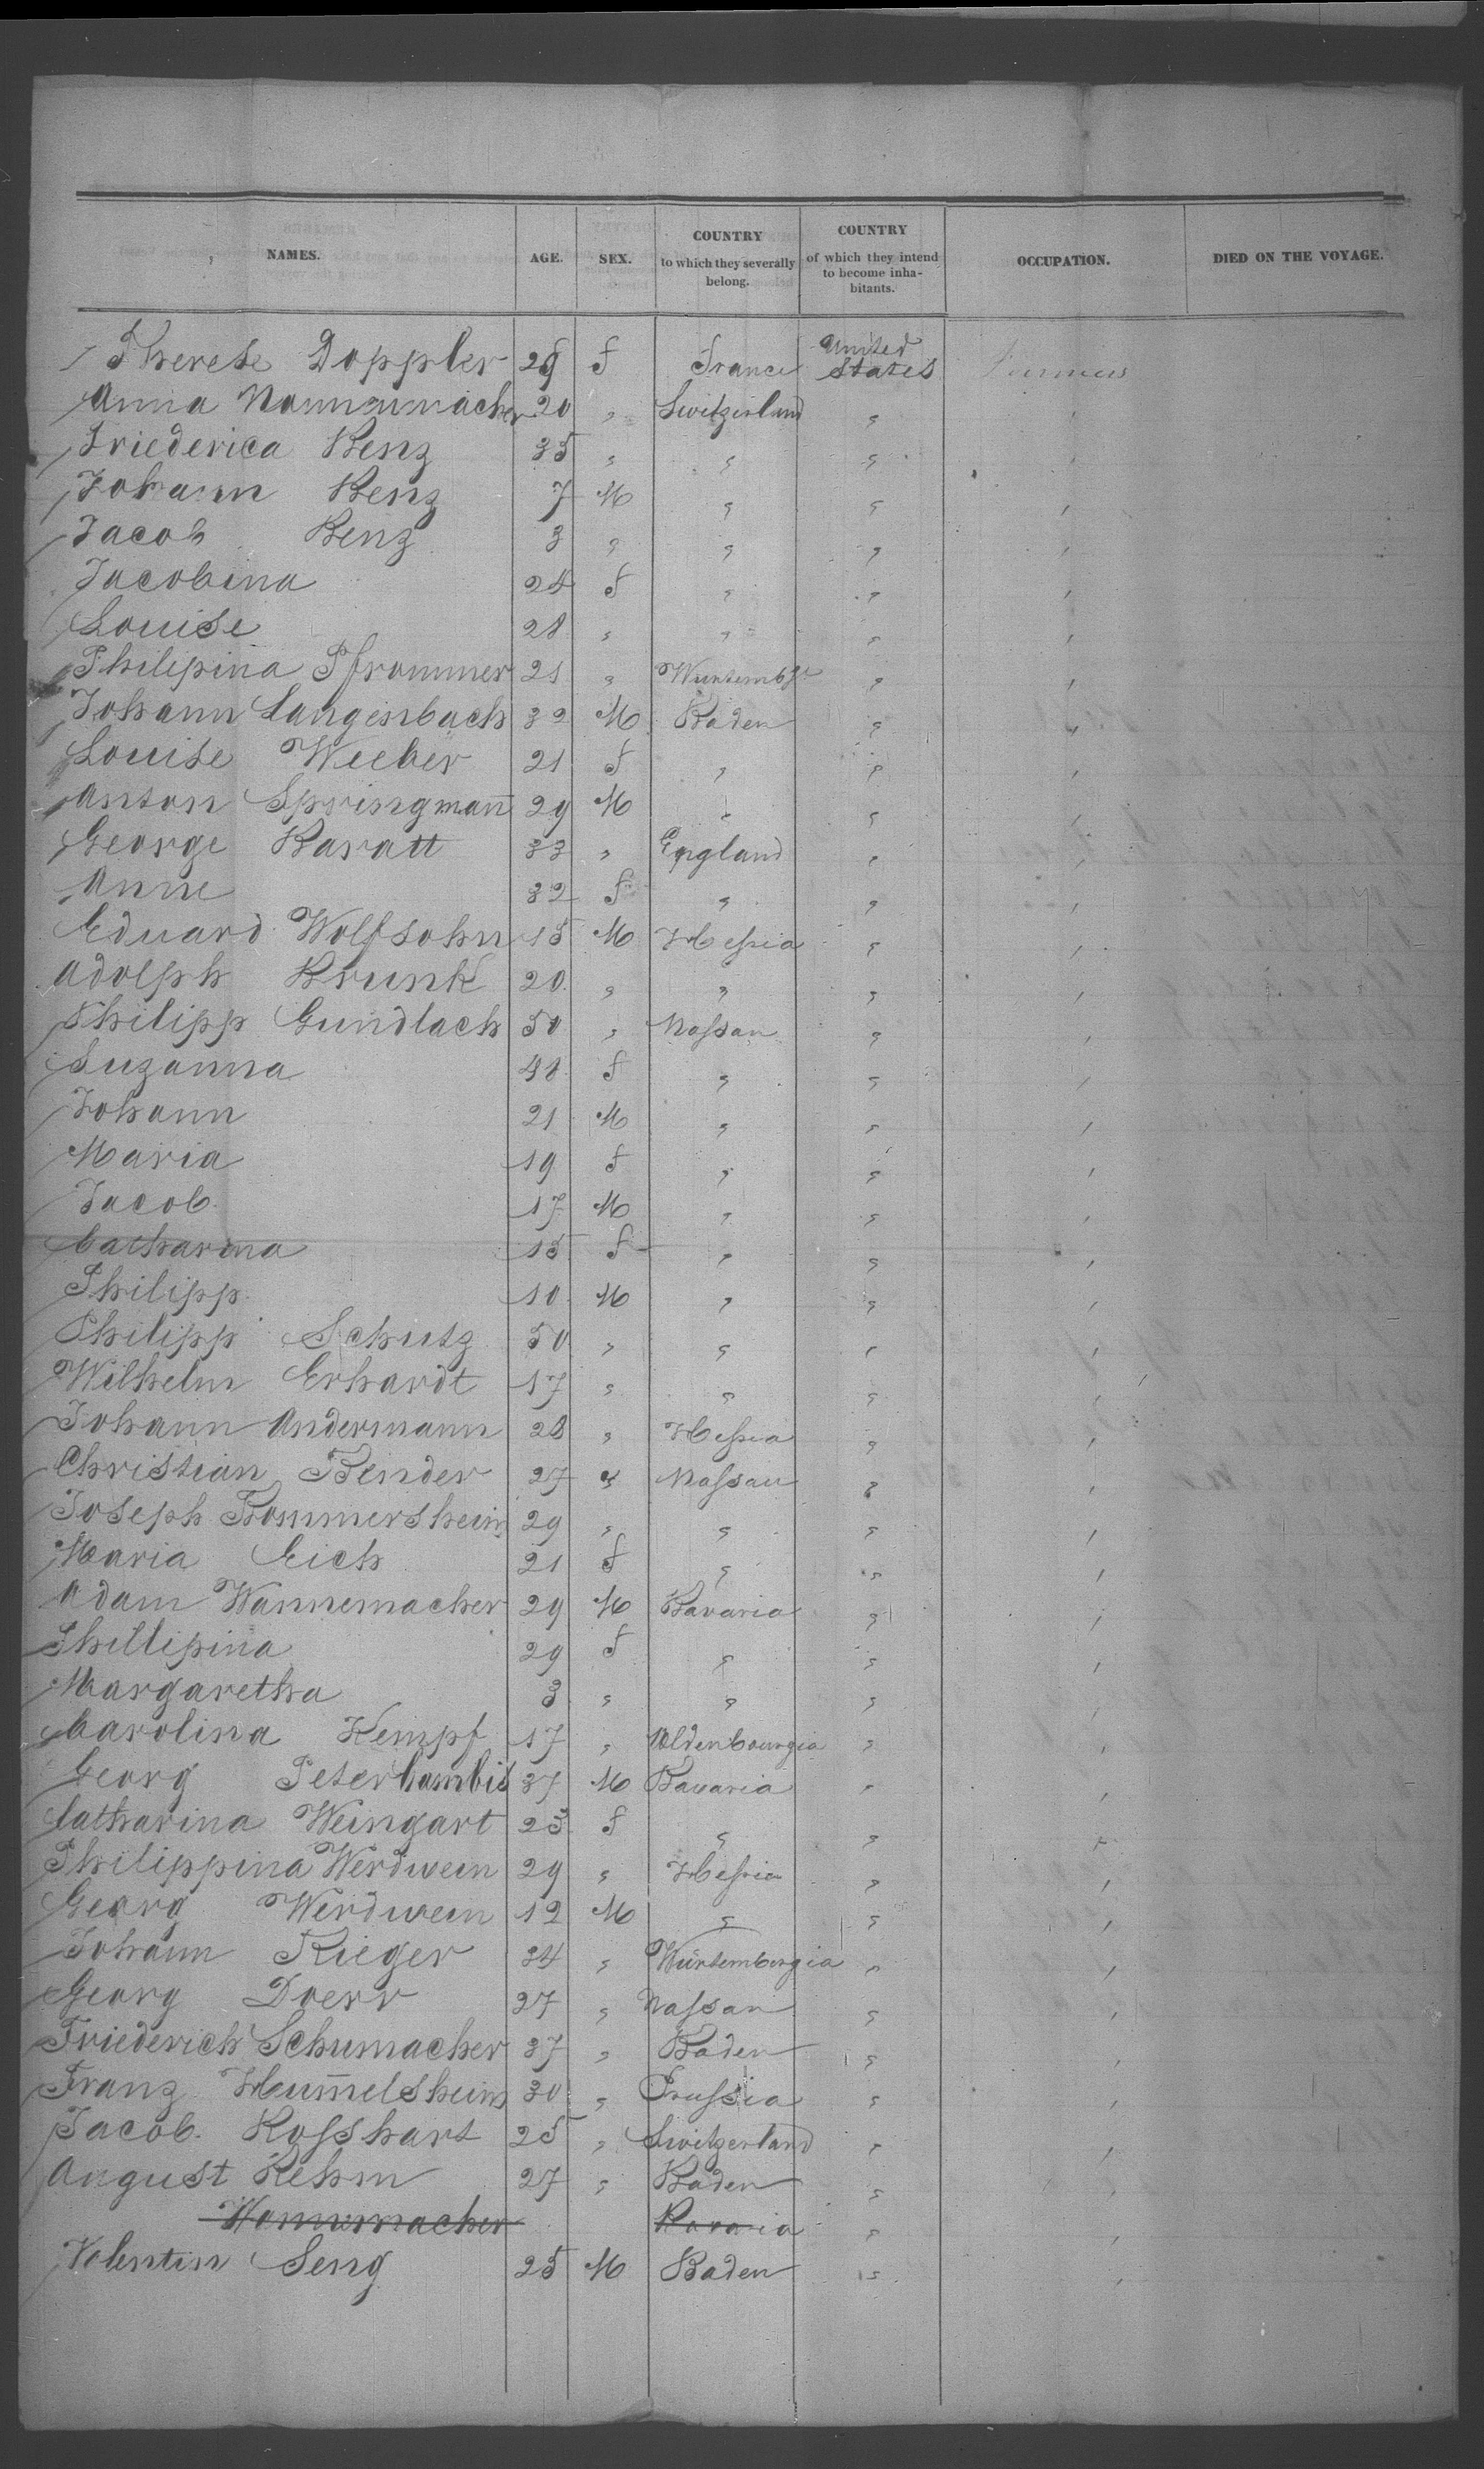 NAMES. AGE. SEX. COUNTRY to which they severally belong. COUNTRY of which they intend to become inhabitants. OCCUPATION. DIED ON THE VOYAGE.
Therese Doppler 29 f France United States Farmers
Anna Nonnenmacher 20 " Switzerland "
Friederica Benz 35 " " " "
Johann Benz 7 M " " "
Jacob Benz 3 " " " "
Jacobina 24 f " " "
Louise 28 " " " "
Philepina Pfrommer 21 " Wurtembg " "
Johann Langenbach 32 M Baden " "
Louise Weeber 21 f " " "
Anton Springmañ 29 M " " "
George Baratt 33 " England " "
Anne 32 f " " "
Eduard Wolfsohn 15 M Hessia " "
Adolph Brunk 20 " " " "
Philipp Gundlach 50 " Nassau " "
Suzanna 48 f " " "
Johann 21 M " " "
Maria 19 f " " "
Jacob 17 M " " "
Catharina 15 f " " "
Philipp 10 M " " "
Philipp Schutz 50 " " " "
Wilhelm Erhardt 17 " " " "
Johann Andermann 28 " Hessia " "
Christian Bender 27 " Nassau " "
Joseph Frommersheim 29 " " " "
Maria Eich 21 f " " "
Adam Wannemacher 29 M Bavaria " "
Phillipina 29 f " " "
Margaretha 3 " " " "
Carolina Kempf 17 " Oldenbourgia " "
Georg Peter Cambis 37 M Bavaria " "
Catharina Weingart 23 f " " "
Philippina Werdwein 29 " Hessia " "
Georg Werdwein 12 M " " "
Johann Rieger 34 " Würtembergia " "
Georg Doerr 27 " Nassau " "
Friederich Schumacher 37 " Baden " "
Franz Hum̄elsheim 30 " Prussia " "
Jacob Rosshart 25 " Switzerland " "
August Rehm 27 " Baden " "
Wannemacher Bavaria " "
Valentin Seng 25 M Baden " "